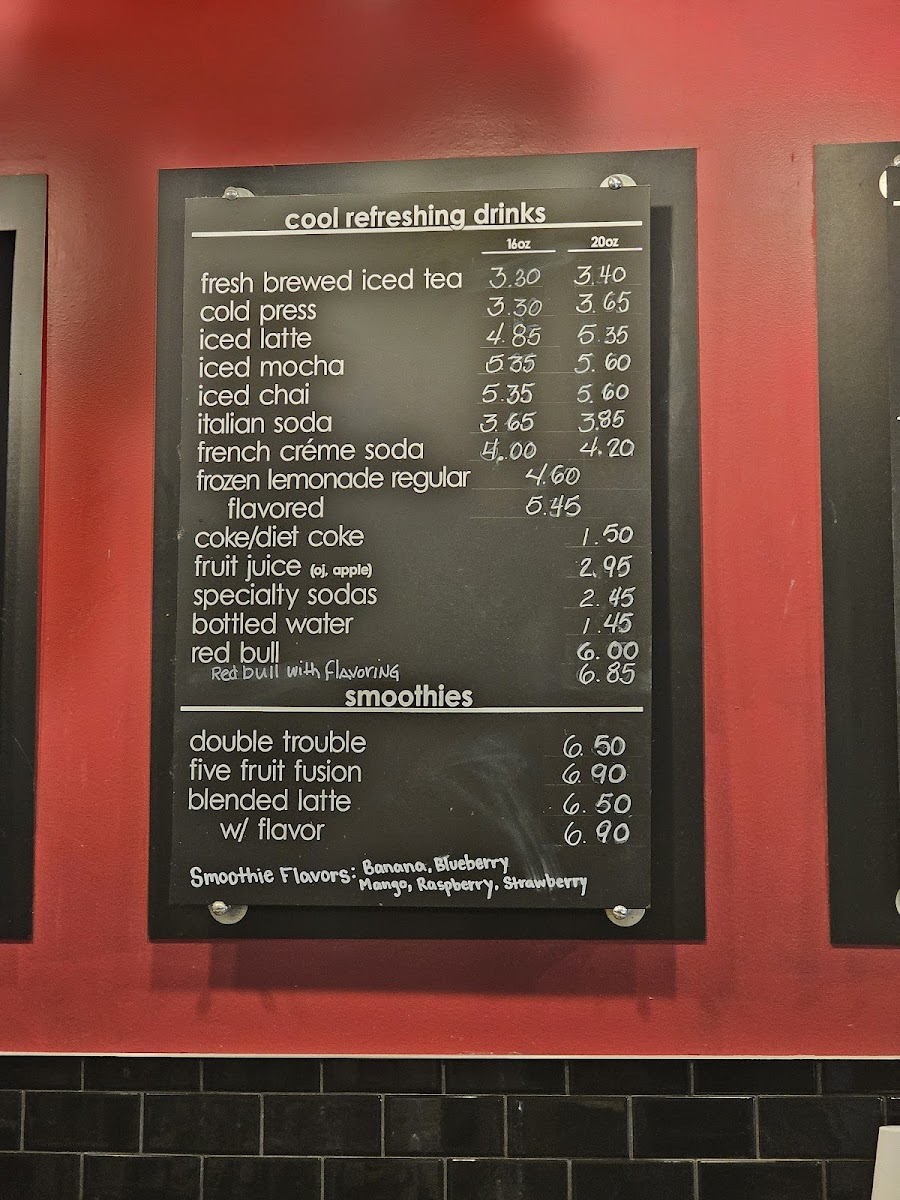 cool refreshing drinks
16oz 20oz
fresh brewed iced tea 3.30 3.40
cold press 3.30 3.65
iced latte 4.85 5.35
iced mocha 5.35 5.60
iced chai 5.35 5.60
italian soda 3.65 3.85
french créme soda 4.00 4.20
frozen lemonade regular 4.60
flavored 5.45
coke/diet coke 1.50
fruit juice (oj, apple) 2.95
specialty sodas 2.45
bottled water 1.45
red bull 6.00
Red bull with flavoring 6.85
smoothies
double trouble 6.50
five fruit fusion 6.90
blended latte 6.50
w/ flavor 6.90
Smoothie Flavors: Banana, Blueberry
Mango, Raspberry, Strawberry